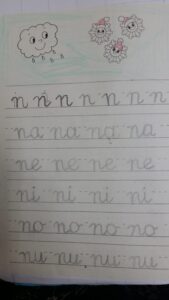 n n n n n n n
na na na na
ne ne ne ne
ni ni ni ni
no no no no
nu nu nu nu